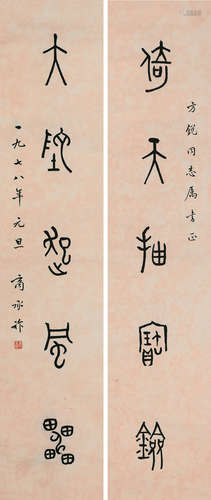 倚天抽寶鐱
方銳同志属書正
大陸起風雷
一九七八年元旦 商承祚